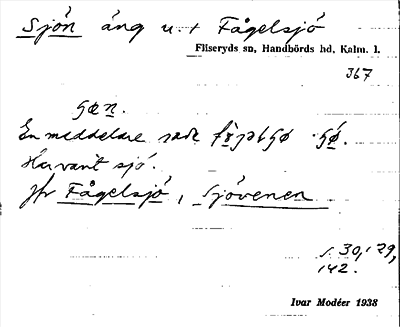 Sjón äng u. t Fågelsjö
Fliseryds sn, Handbörds hd, Kalm. l.
367
En meddelare sade
Har varit sjö.
Jfr Fågelsjö, Sjövenen
s. 30, 129,
142.
Ivar Modéer 1938